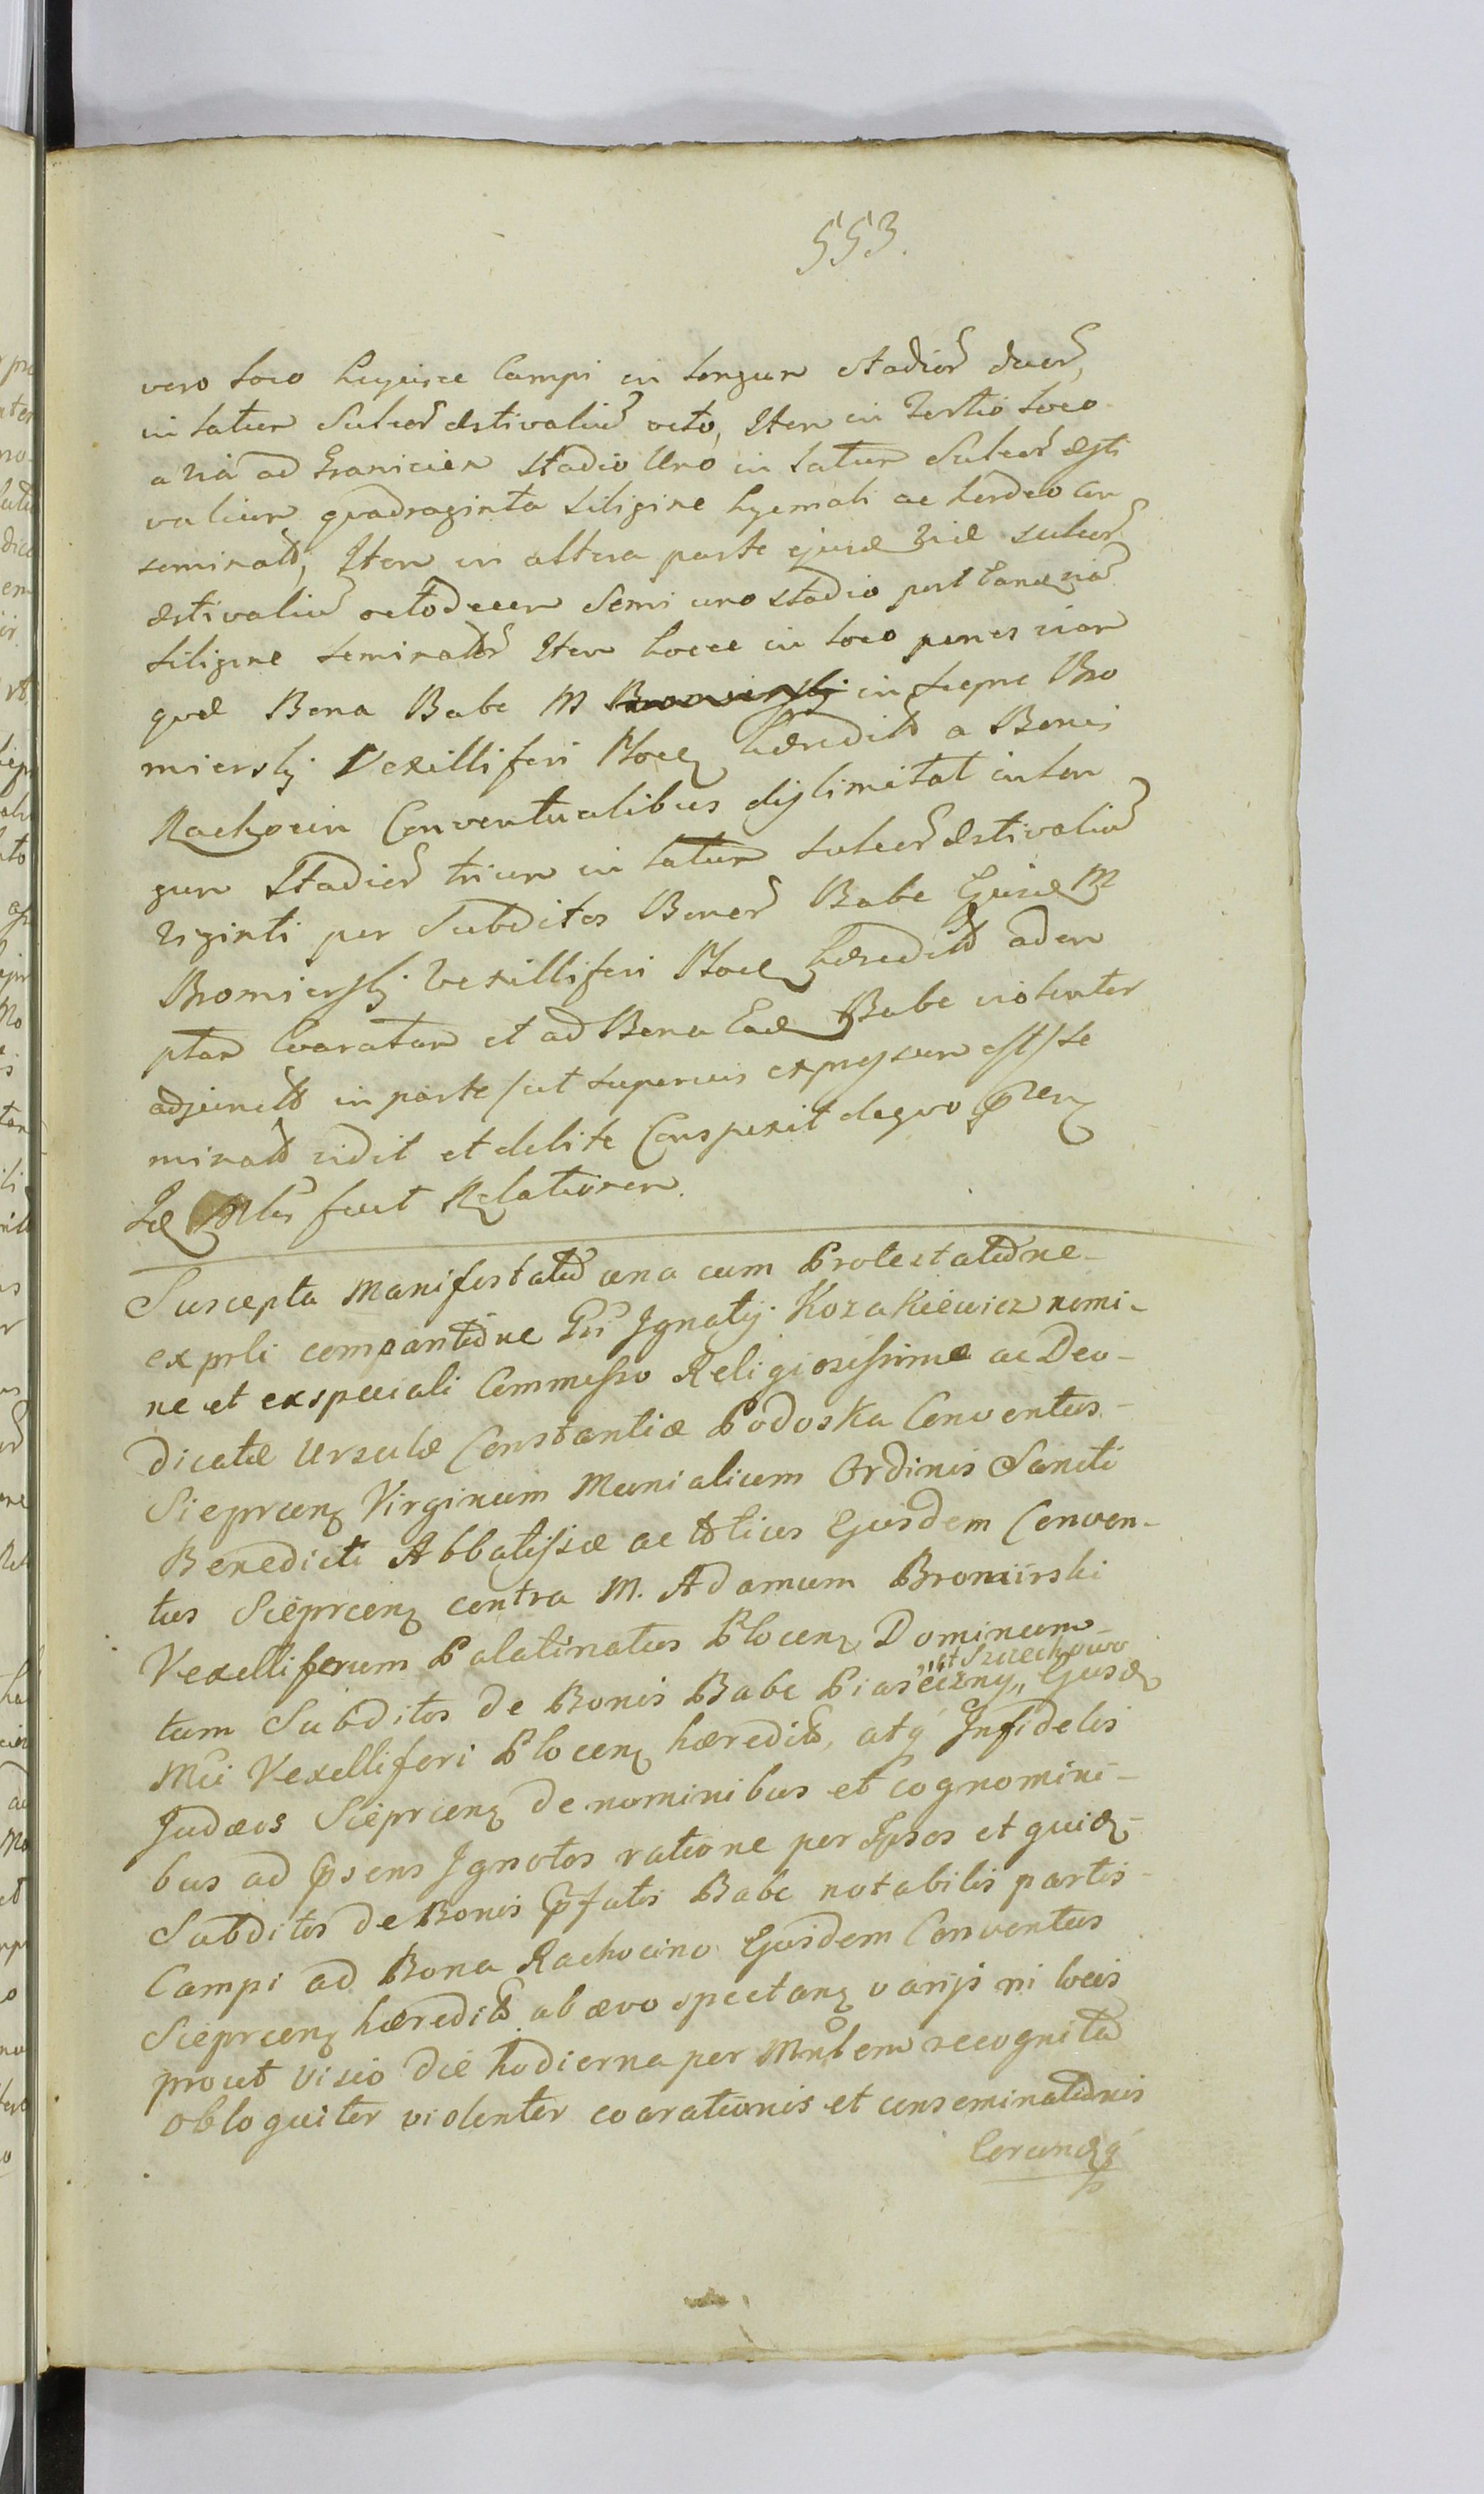 553.
vero loco hujusce Campi in longum Stadior duor,
in latum Sulcor æstivaliu octo, Item in Tertio loco
a via ad Graniciem Stadio Uno in latum Sulcor æsti
valium quadraginta siligine hyemali ac hordeo con
seminatt, Item in altera parte ejusd viæ sulcor
æstivaliu octodecem Semi uno stadio post eand via
siligine seminator Item hocce in loco penes viam
quæ Bona Babe M insigne Bro
mierski Vexilliferi Plocen hæreditt a Bonis
Rachocin Conventualibus dislimitat in lon
gum Stadior trium in latum Sulcor æstivaliu
viginti per Subditos Bonor Babe Ejusd M
Bromierski Vexilliferi Plocen hæreditt adem
ptam Coaratam et ad Bona Ead Babe violenter
adjunctt in parte /ut superius expressum est/ se
minatt vidit et debite Conspexit de quo
fecit Relationem.
Suscepta Manifestatio una cum Protestatione
ex prli comparitione Gsi Ignatij Kozakiewicz nomi-
ne et ex speciali Commisso Religiosissimæ ac Deo-
dicatæ Ursulæ Constantiæ Podoska Conventus
Sieprcen Virginum Monialium Ordinis Sancti
Benedicti Abbatissæ ac totius Ejusdem Conven-
tus Sieprcen contra M. Adamum Bromirski
Vexilliferum Palatinatus Plocen Dominum
„et Szczechowo
tum Subditos de Bonis Babe Piaseczny „ Ejusd
Mci Vexilliferi Plocen hæreditt, atq Infideles
Judæos Sieprcen de nominibus et cognomini-
bus ad psens Ignotos ratione per Ipsos et quid
Subditos de Bonis pfatis Babe notabilis partis
Campi ad Bona Rachocino Ejusdem Conventus
Sieprcen hæreditt ab ævo spectan varijs in locis
prout visio die hodierna per Mnlem recognita
obloquitur violenter coarationis et conseminationis
Eorundq